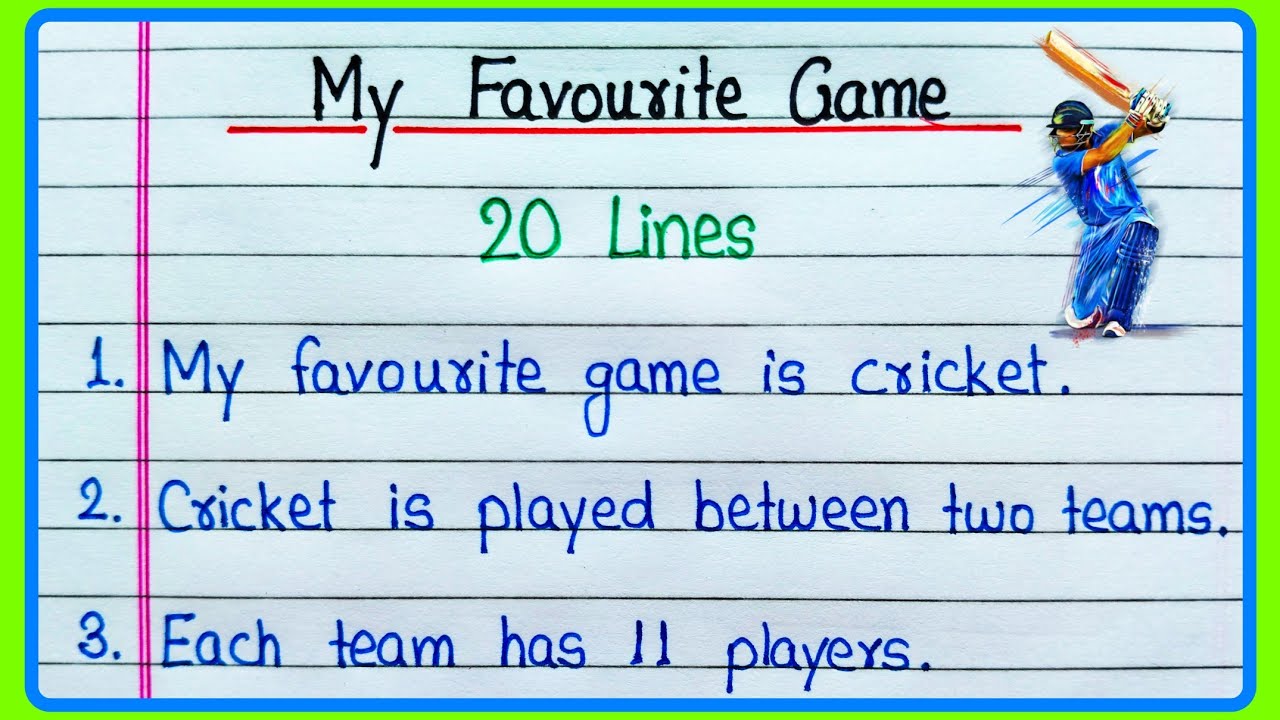 My Favourite Game
20 Lines
1. My favourite game is cricket.
2. Cricket is played between two teams.
3. Each team has 11 players.